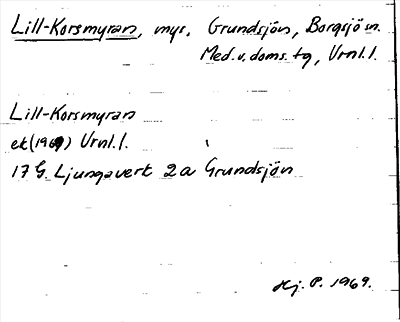 Lill-Korsmyran, myr, Grundsjön, Borgsjö sn.
Med. v. doms. tg, Urnl. l.
Lill-Korsmyran
ek (1969) Urnl. l.
17 G. Ljungaverk 2a Grundsjön
Hj. P. 1969.